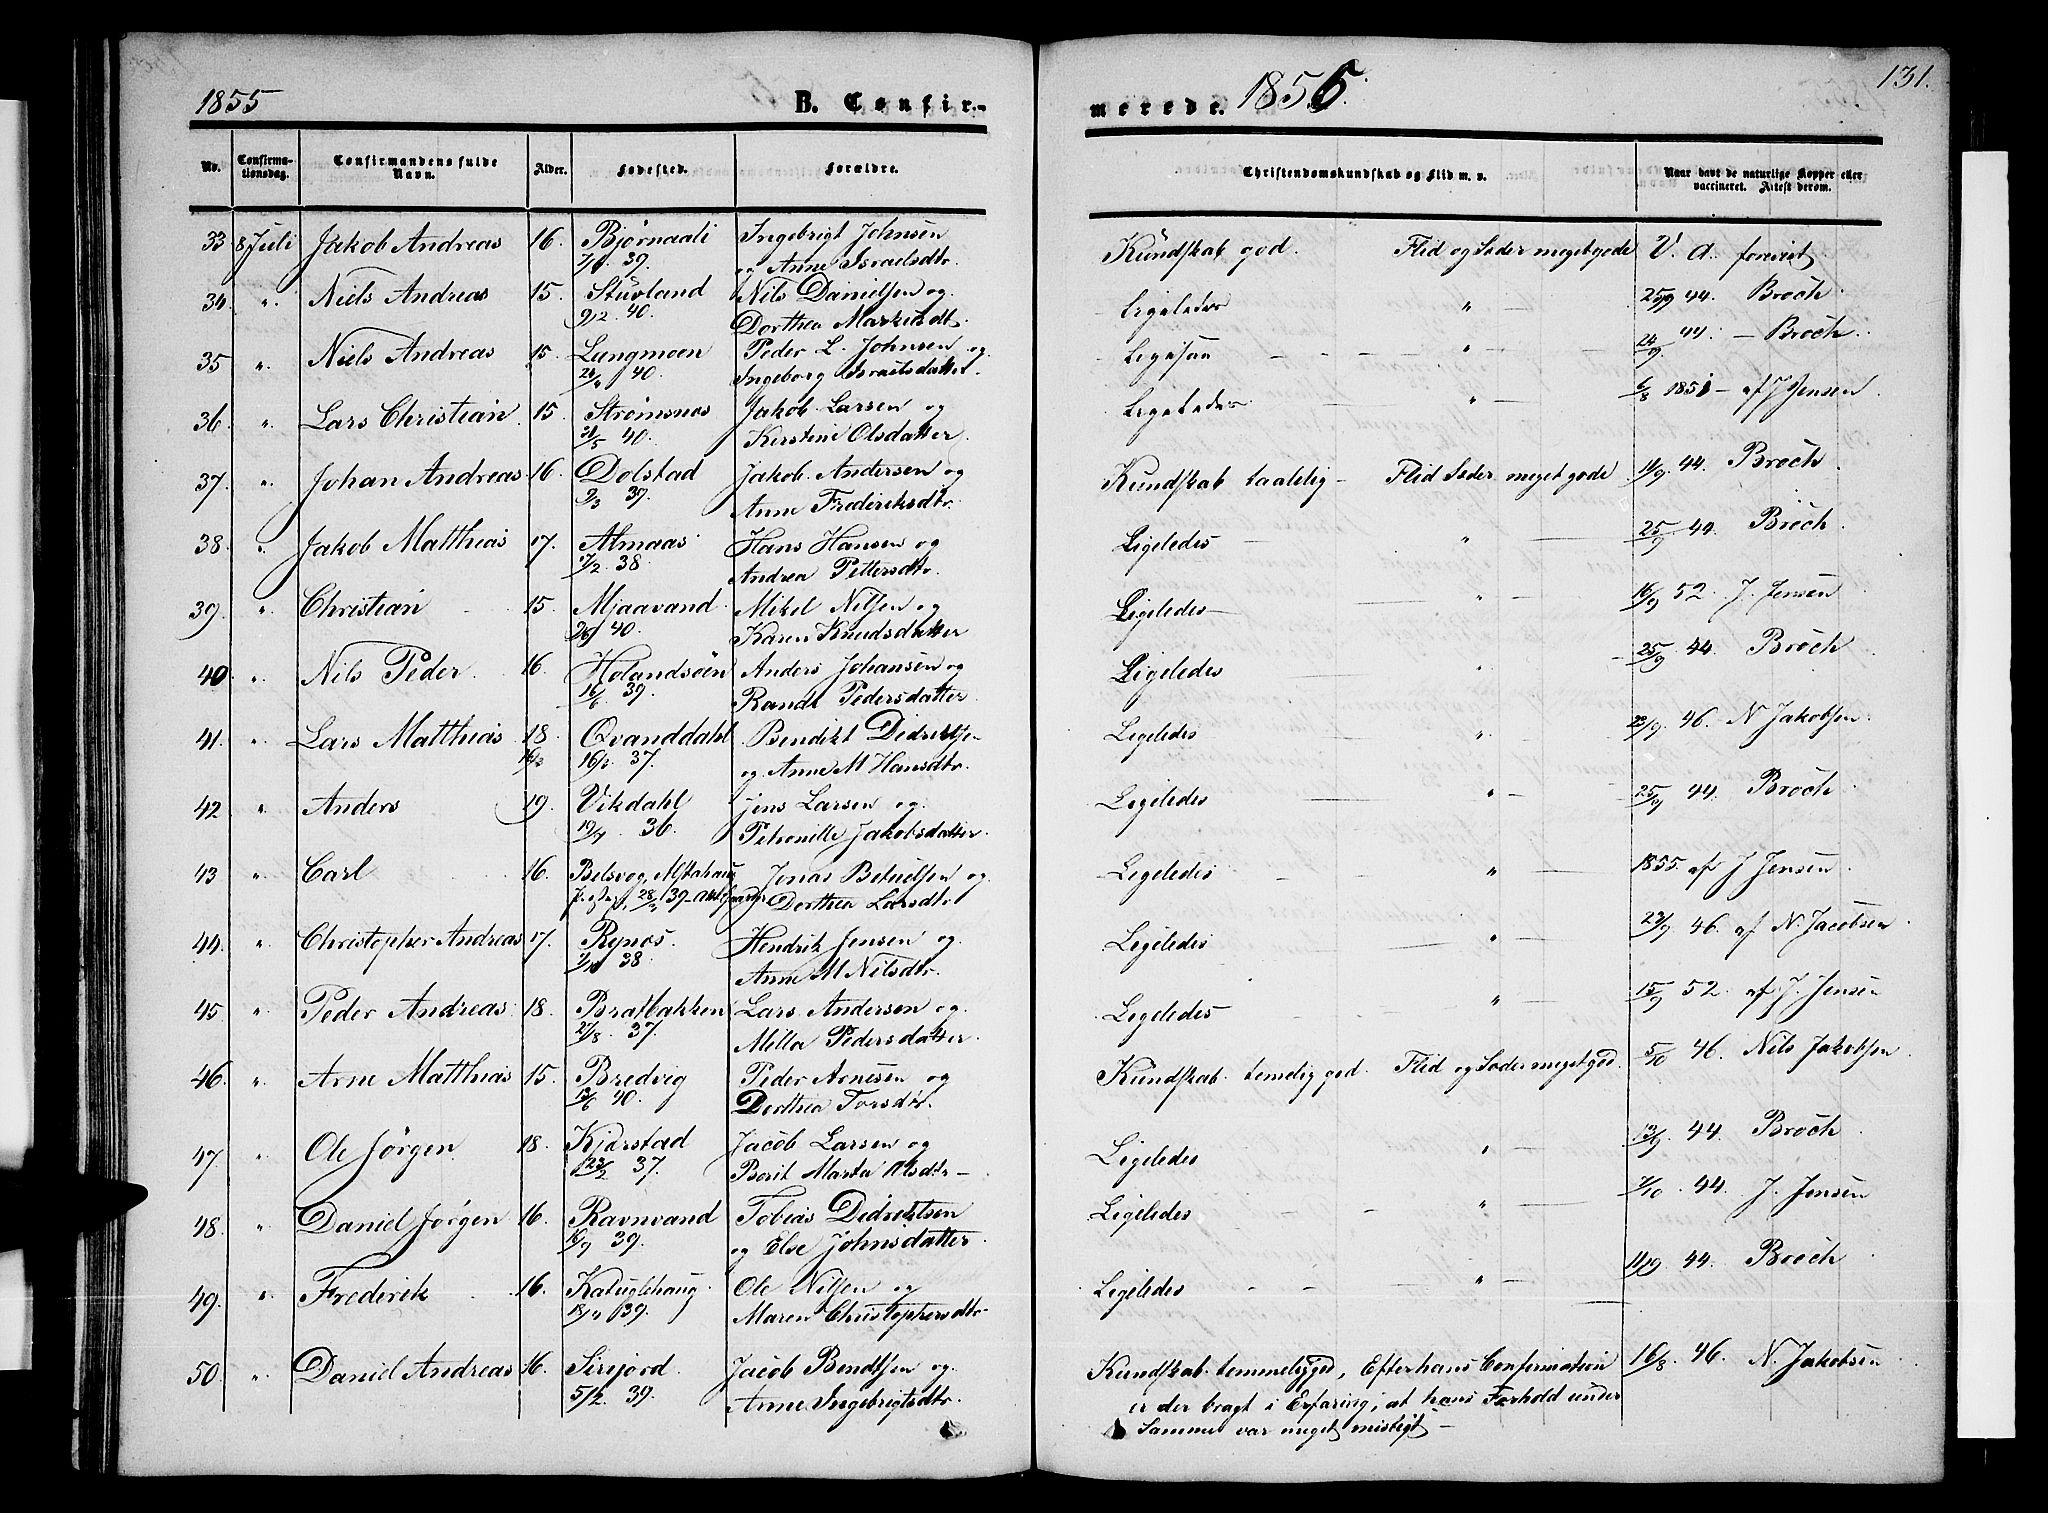 1855
B. Confir-
merede.
1855.
131.
No.
Confirma-
tionsdag.
Confirmandens fulde
Navn.
Alder.
Fødested.
Forældre.
Christendomskundskab og Flid m. v.
Naar havt de naturlige Kopper eller
vaccineret. Attest derom.
33 8 Juli Jakob Andreas 16. Bjørnaali Ingebrigt Johnsen Kundskab god. Flid og Sæder meget gode V. A. forevist
39. og Anne Israelsdtr.
34. " Niels Andreas 15. Stuvland Nils Danielsen og Ligeledes " 25/9 44. Broch.
9/2 40. Dorthea Markusdt.
35 " Niels Andreas 15. Langmoen Peder L. Johnsen og Ligesaa " 24/9 44. – Broch.
40. Ingeborg Israelsdatter.
36. " Lars Christian 15. Strømsnes Jakob Larsen og Ligeledes " 6/8 1851 – af J. Jensen
40. Kerstine Olsdatter.
37. " Johan Andreas 16. Dolstad Jakob Andersen og Kundskab taalelig – Flid Sæder meget gode 11/9 44. Broch
9/3 39. Anne Frederiksdtr.
38. " Jakob Matthias 17. Almaas Hans Hansen og Ligeledes – " 25/9 44. Broch.
7/2 38. Andrea Pettersdtr.
39. " Christian 15. Mjaavand Mikel Nilsen og Ligeledes – " 16/9 52. J. Jensen
40. Karen Knudsdatter
40. " Nils Peder 16 Holandsøen Anders Johansen og Ligeledes " 25/9 44. Broch
16/6 39. Randi Pedersdatter
41. " Lars Matthias 18 Qvanddahl Bendikt Didriksen Ligeledes " 23/9 46. N Jakobsen
37. og Anne M Hansdtr.
42 " Anders 19. Vikdahl Jens Larsen og Ligeledes " 25/9 44. Broch
36. Petronille Jakobsdatter
43 " Carl 16. Belsvog, Alstahaug Jonas Betuelsen og Ligeledes " 1855. af J Jensen
39 Dorthea Larsdtr
44. " Christopher Andreas 17. Rynes. Hendrik Jensen og Ligeledes " 23/9 46. af N. Jacobsen
38. Anne M Nilsdtr.
45 " Peder Andreas 18. Bratbakken Lars Andersen og Ligeledes – " 15/9 52. af J. Jensen
27/8 37. Milla Pedersdatter
46. " Arne Matthias 15. Bredvig Peder Arnesen og Kundskab temelig god. Flid og Sæder meget god 5/10 46. Nils Jakobsen
40. Dorthea Torsdtr.
47 " Ole Jørgen 18. Kjærstad Jacob Larsen og Ligeledes " 13/9 44. Broch
37. Berit Marta Olsdtr –
48. " Daniel Jørgen 16. Ravnvand Tobias Didriktsen Ligeledes " 44. J. Jensen
39. og Else Johnsdatter
49. " Frederik 16. Katuglehaug Ole Nilsen og Ligeledes " 44. Broch
39. Maren Christophersdtr
50. " Daniel Andreas 16. Sirijord Jacob Bendtsen og Kundskab temmelig god, Efter hans Confirmation 16/8 46. N. Jakobsen
5/12. 39. Anne Ingebrigtsdtr. er der bragt i Erfaring, at hans Forhold under
Samme var meget misligt –